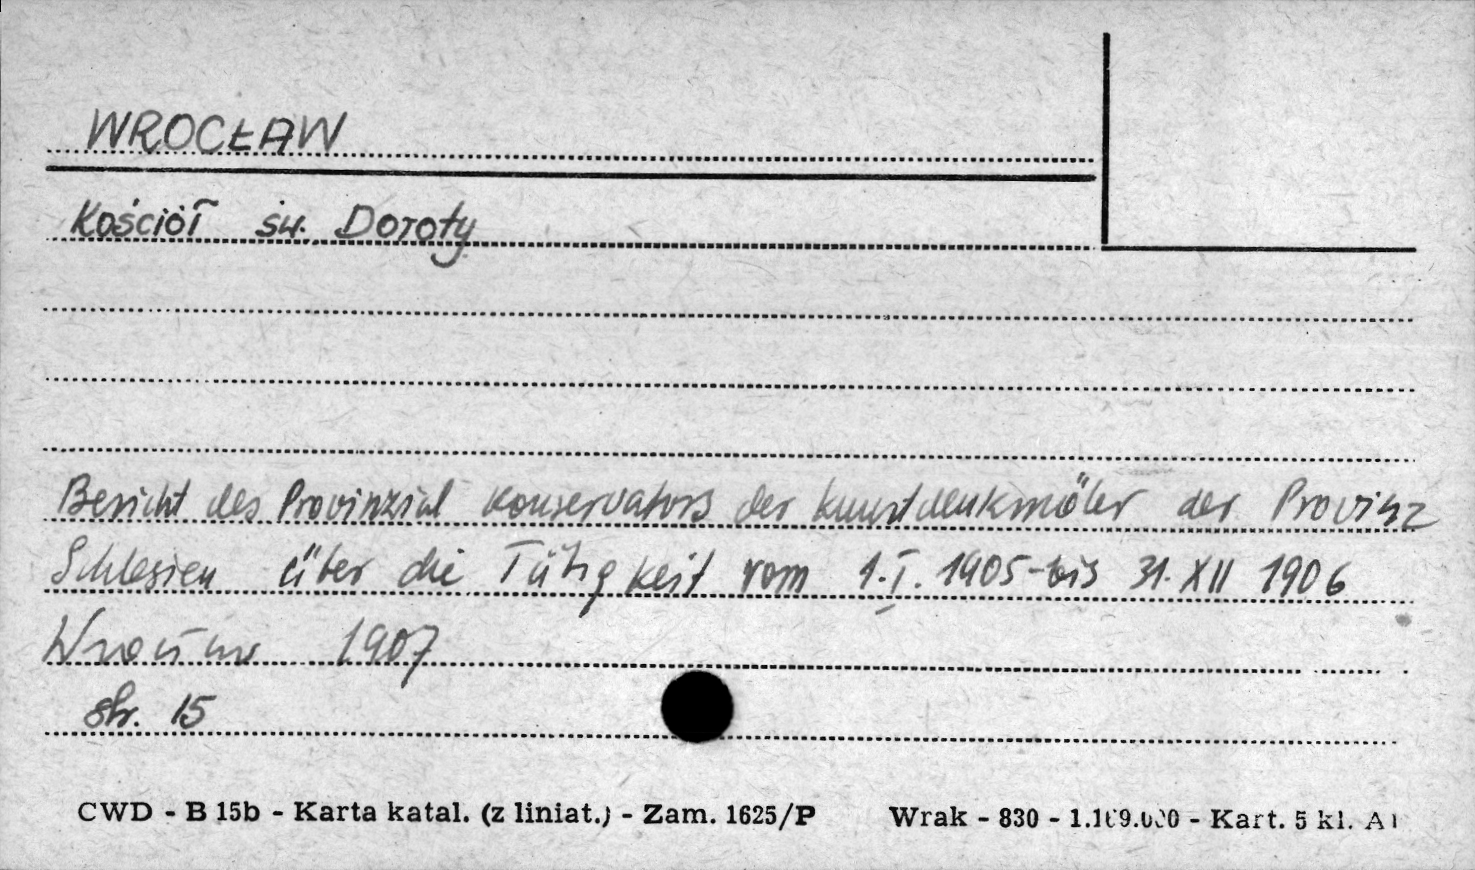 WROCŁAW
Kościół św. Doroty
Bericht des Provinzial Konservators der Kunstdenkmäler der Provinz
Schlesien über die Tätigkeit vom 1.I.1905-bis 31.XII 1906
1907
str. 15
CWD - B 15b - Karta katal. (z liniat.) - Zam. 1625/P Wrak - 830 - Kart. 5 kl.